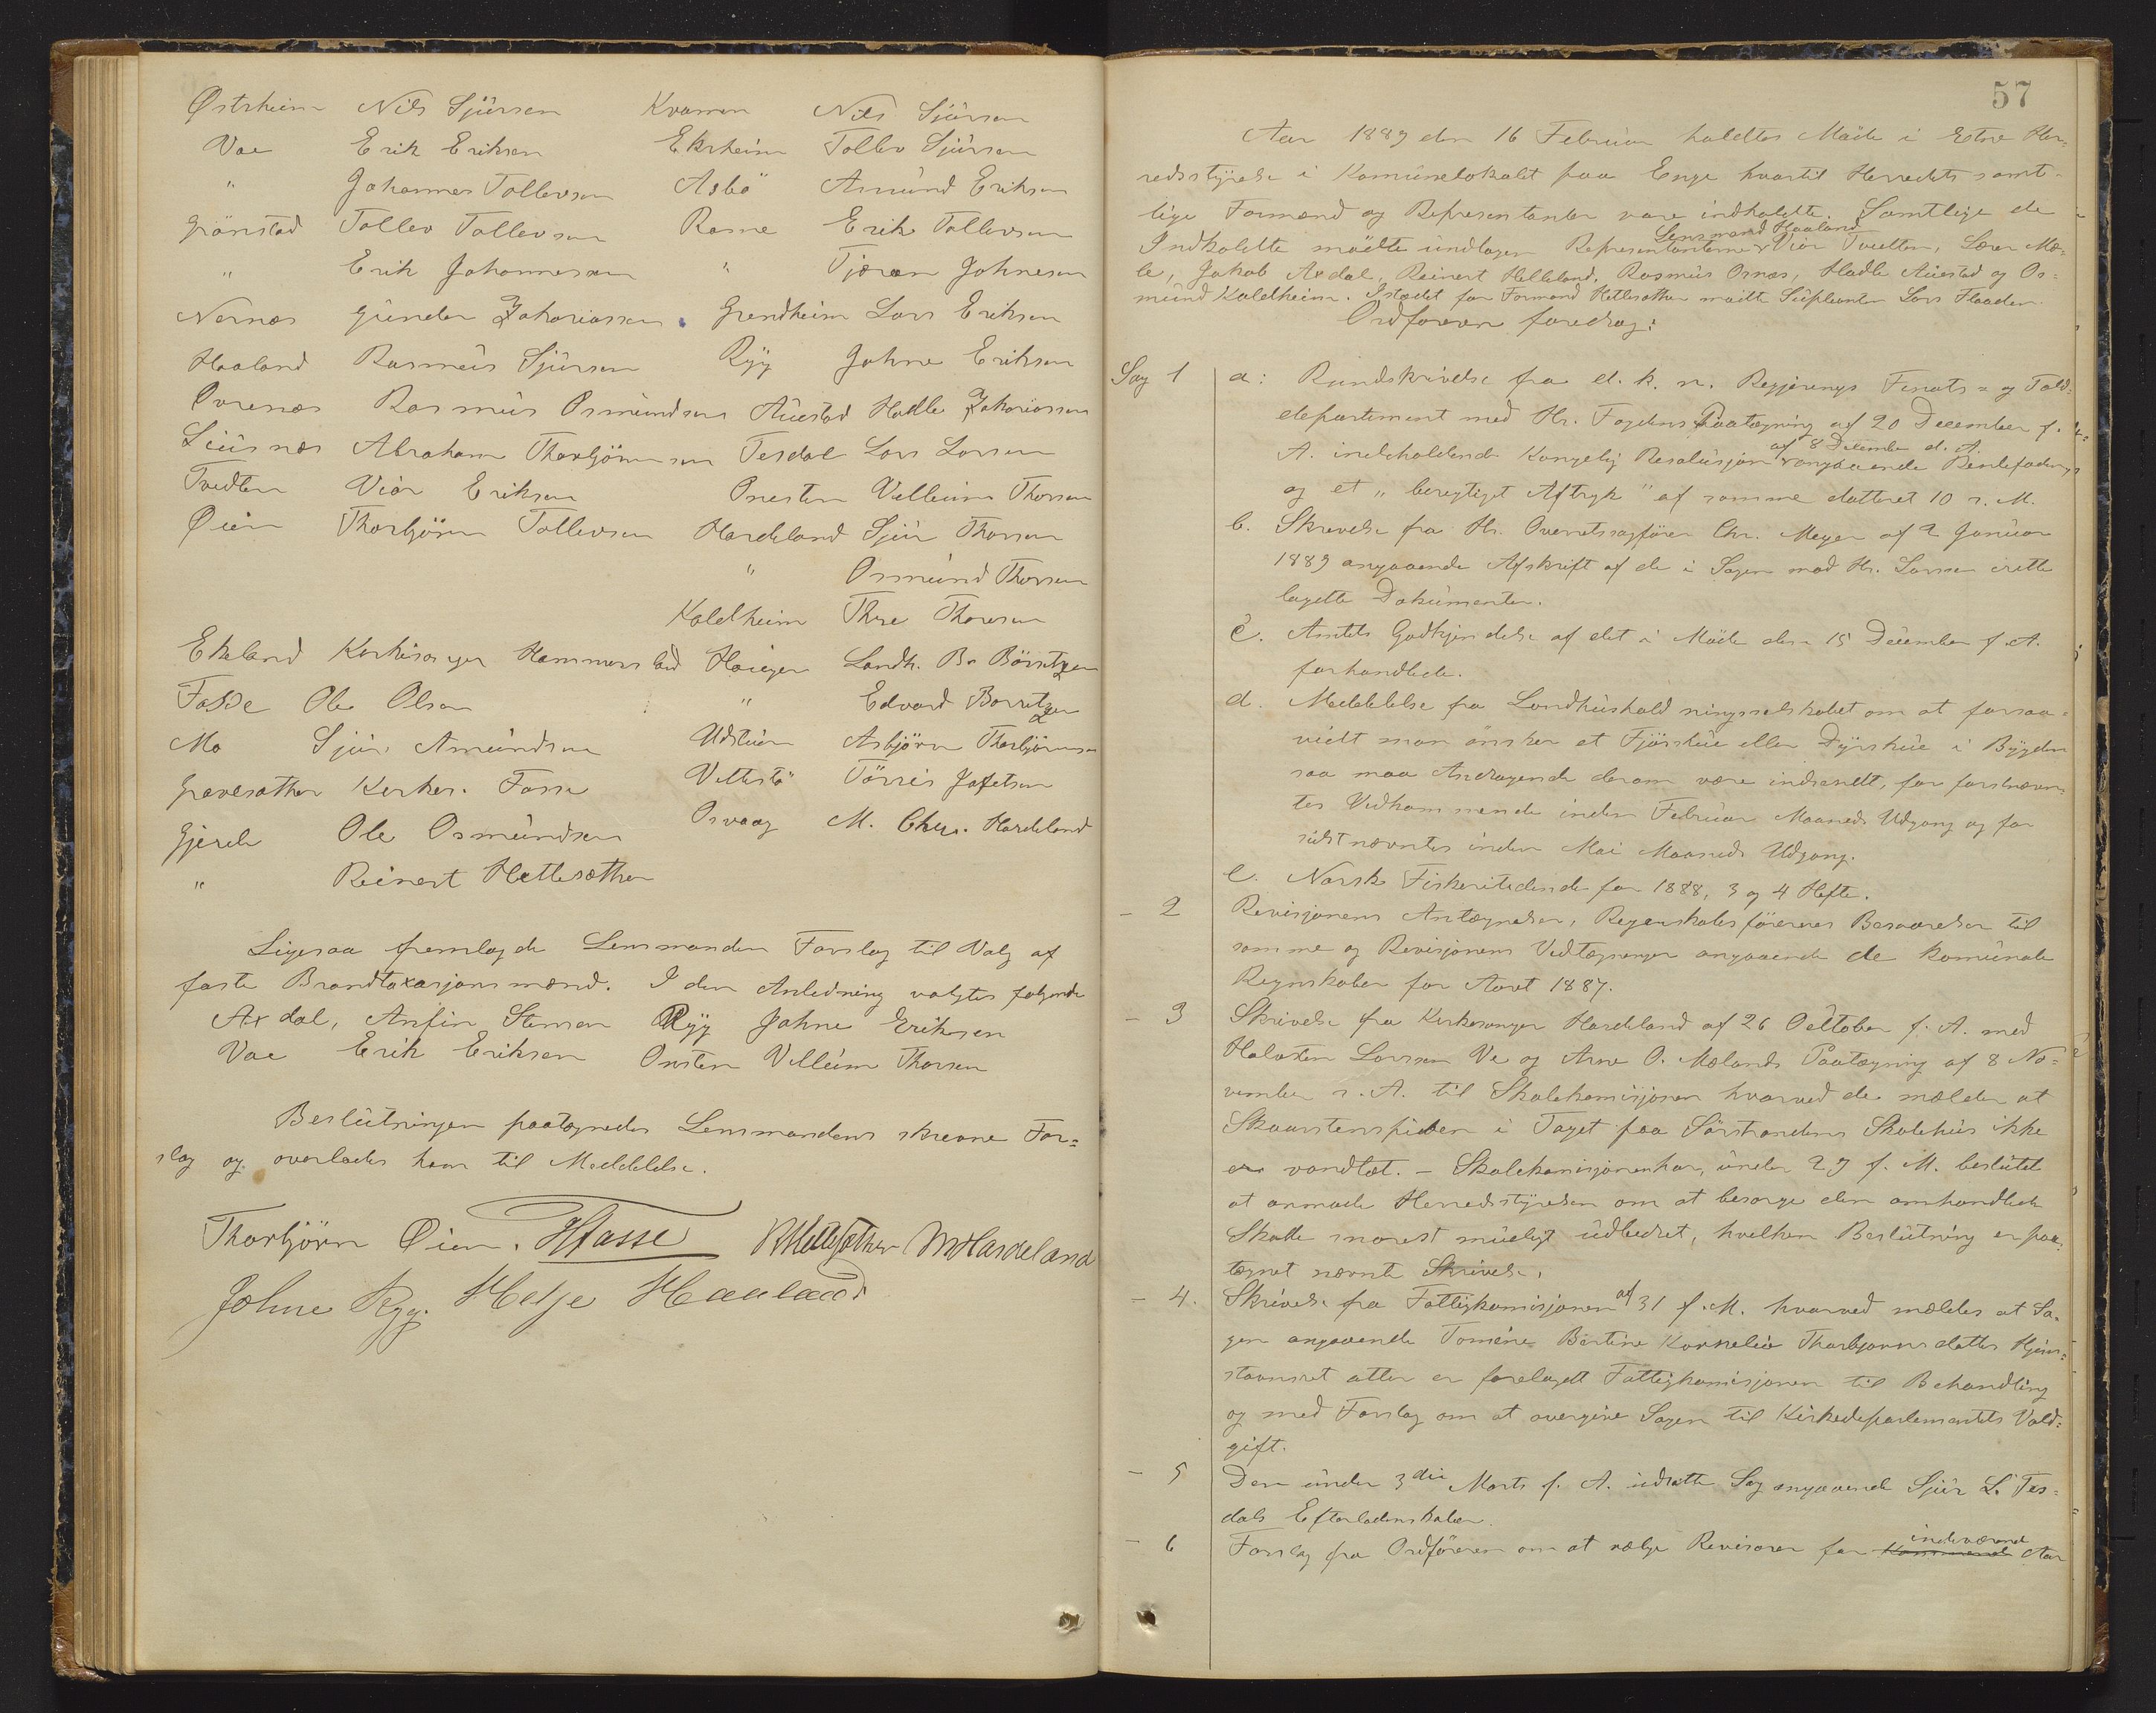 Østrheim Nils Sjursen Kvamen Nils Sjursen
Vae Erik Eriksen Ekrheim Tollev Sjursen
" Johannes Tollevsen Asbö Amund Eriksen
Grönstad Tollev Tollevsen Ramne Erik Tollevsen
" Erik Johannesen " Tjæran Johnesen
Nernæs Gunder Zakariassen Grendheim Lars Eriksen
Haaland Rasmus Sjursen Ryg Johne Eriksen
Ovrenæs Rasmus Osmundsen Auestad Hadle Zakariassen
Liusnæs Abraham Thorbjörnsen Tesdal Lars Larsen
Tvedten Vier Eriksen Onesten Velleim Thorsen
Øien Thorbjörn Tollevsen Hardeland Sjur Thorsen
" Osmund Thorsen
Koldheim Thore Thoresen
Ekeland Kirkesanger Hammersland Haugen Landh. B. Börretzen
Fosse Ole Olsen " Edvard Borretzen
Mo Sjur Amundsen Udstuen Asbjörn Thorbjörnsen
Grovesæther Kirkes. Fosse Vettestö Törris Jafetsen
Gjerde Ole Osmundsen Osvaag M. Chr. Hardeland
" Reinert Hettesæther
Ligesaa fremlagde Lensmanden Forslag til Valg af
faste Brandtaxasjonsmænd. I den Anledning valgtes følgende
Axdal, Anfin Stensen Ryg Johne Eriksen
Vae Erik Eriksen Onsten Velleim Thorsen
Beslutningen paategnedes Lensmandens skrevne For=
slag og overlades ham til Meddelelse.
Thorbjörn Øien. HFasse RHettesæther MHardeland
Johne Ryg. Helje Haaland
57
Aar 1889 den 16 Februar holdtes Møde i Etne Her=
redsstyrelse i Komunelokalet paa Enge hvortil Herredets samt=
lige Formænd og Representanter vare indkaldte. Samtlige de
Lensmand Haaland
Indkaldte mödte undtagen Representanterne Vier Tvedten, Lærer Mæ=
le, Jakob Axdal, Reinert Helleland, Rasmus Osnæs, Hadle Auestad og Os=
mund Koldheim. Istædet for Formand Hettesæther mödte Suplianten Lars Flaaden.
Ordføreren foredrog:
Sag 1 a: Rundskrivelse fra d. k. n. Regjerings Finats- og Told=
departiment med Hr. Fogdens Paategning af 20 December f.
af 8 December d. A.
A. indeholdende Kongelig Resolusjon angaaende Renlefodnings
og et "beregtiget Aftryk" af samme dateret 10 s. M.
b. Skrivelse fra Hr. Overretssagförer Chr. Meyer af 2 Januar
1889 angaaende Afskrift af de i Sagen mod Hr. Larsen irette
lagte Dokumenter.
c. Amtets Godkjendelse af det i Møde den 15 December f. A.
forhandlede.
d. Meddelelse fra Landhusholdningsselskabet om at forsaa=
vidt man önsker et Fjösskue eller Dyrskue i Bygden
saa maa Andragende derom være indsendt, for førstnævn=
tes Vedkommende inden Februar Maaneds Udgang og for
sidstnævntes inden Mai Maaneds Udgang.
e. Norsk Fiskeritidende for 1888, 3 og 4 Hefte.
- 2 Revisjonens Antegnelser, Regenskabsförerens Besvarelser til
samme og Revisjonens Vedtegninger angaaende de komunale
Regnskaber for Aaret 1887.
- 3 Skrivelse fra Kirkesanger Hardeland af 26 October f. A. med
Halvsten Larsen Ve og Arne O. Mælands Paategning af 8 No=
vember s. A. til Skolekomisjonen hvorved de mælder at
Skaarstenspiben i Taget paa Sörstrandens Skolehus ikke
er vandtæt. - Skolekomisjonen har, under 29 f. M. besluttet
at anmode Herredsstyrelsen om at besørge den omhandlede
Skade snarest muligt udbedret, hvilken Beslutning er paa=
tegnet nævnte Skrivelse.
- 4. Skrivelse fra Fattigkomisjonen af 31 f. M. hvorved mældes at Sa=
gen angaaende Tomine Bertine Kornelia Thorbjørnsdatters Hjem=
stavnsret atter er forelagt Fattigkomisjonen til Behandling
og med Forslag om at overgive Sagen til Kirkedepartementets Vold=
gift.
- 5 Den under 3die Marts f. A. udsatte Sag angaaende Sjur L. Tes=
dals Efterladenskaber.
indeværend
- 6 Forslag fra Ordföreren om at vælge Revisorer for Kommende Aar